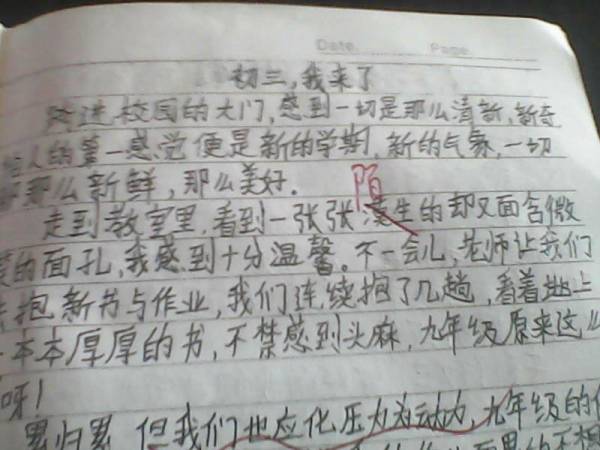 Date. Page
初三,我来了
跨进校园的大门,感到一切是那么清新,新奇
给人的第一感觉便是新的学期,新的气象,一切
都那么新鲜,那么美好.
陌
走到教室里,看到一张张漠生的却又面含微
笑的面孔,我感到十分温馨。不一会儿,老师让我们
去抱新书与作业,我们连续抱了几趟,看着地上
一本本厚厚的书,不禁感到头麻,九年级原来这么
呀!
累归累,但我们也应化压力为动力,九年级的